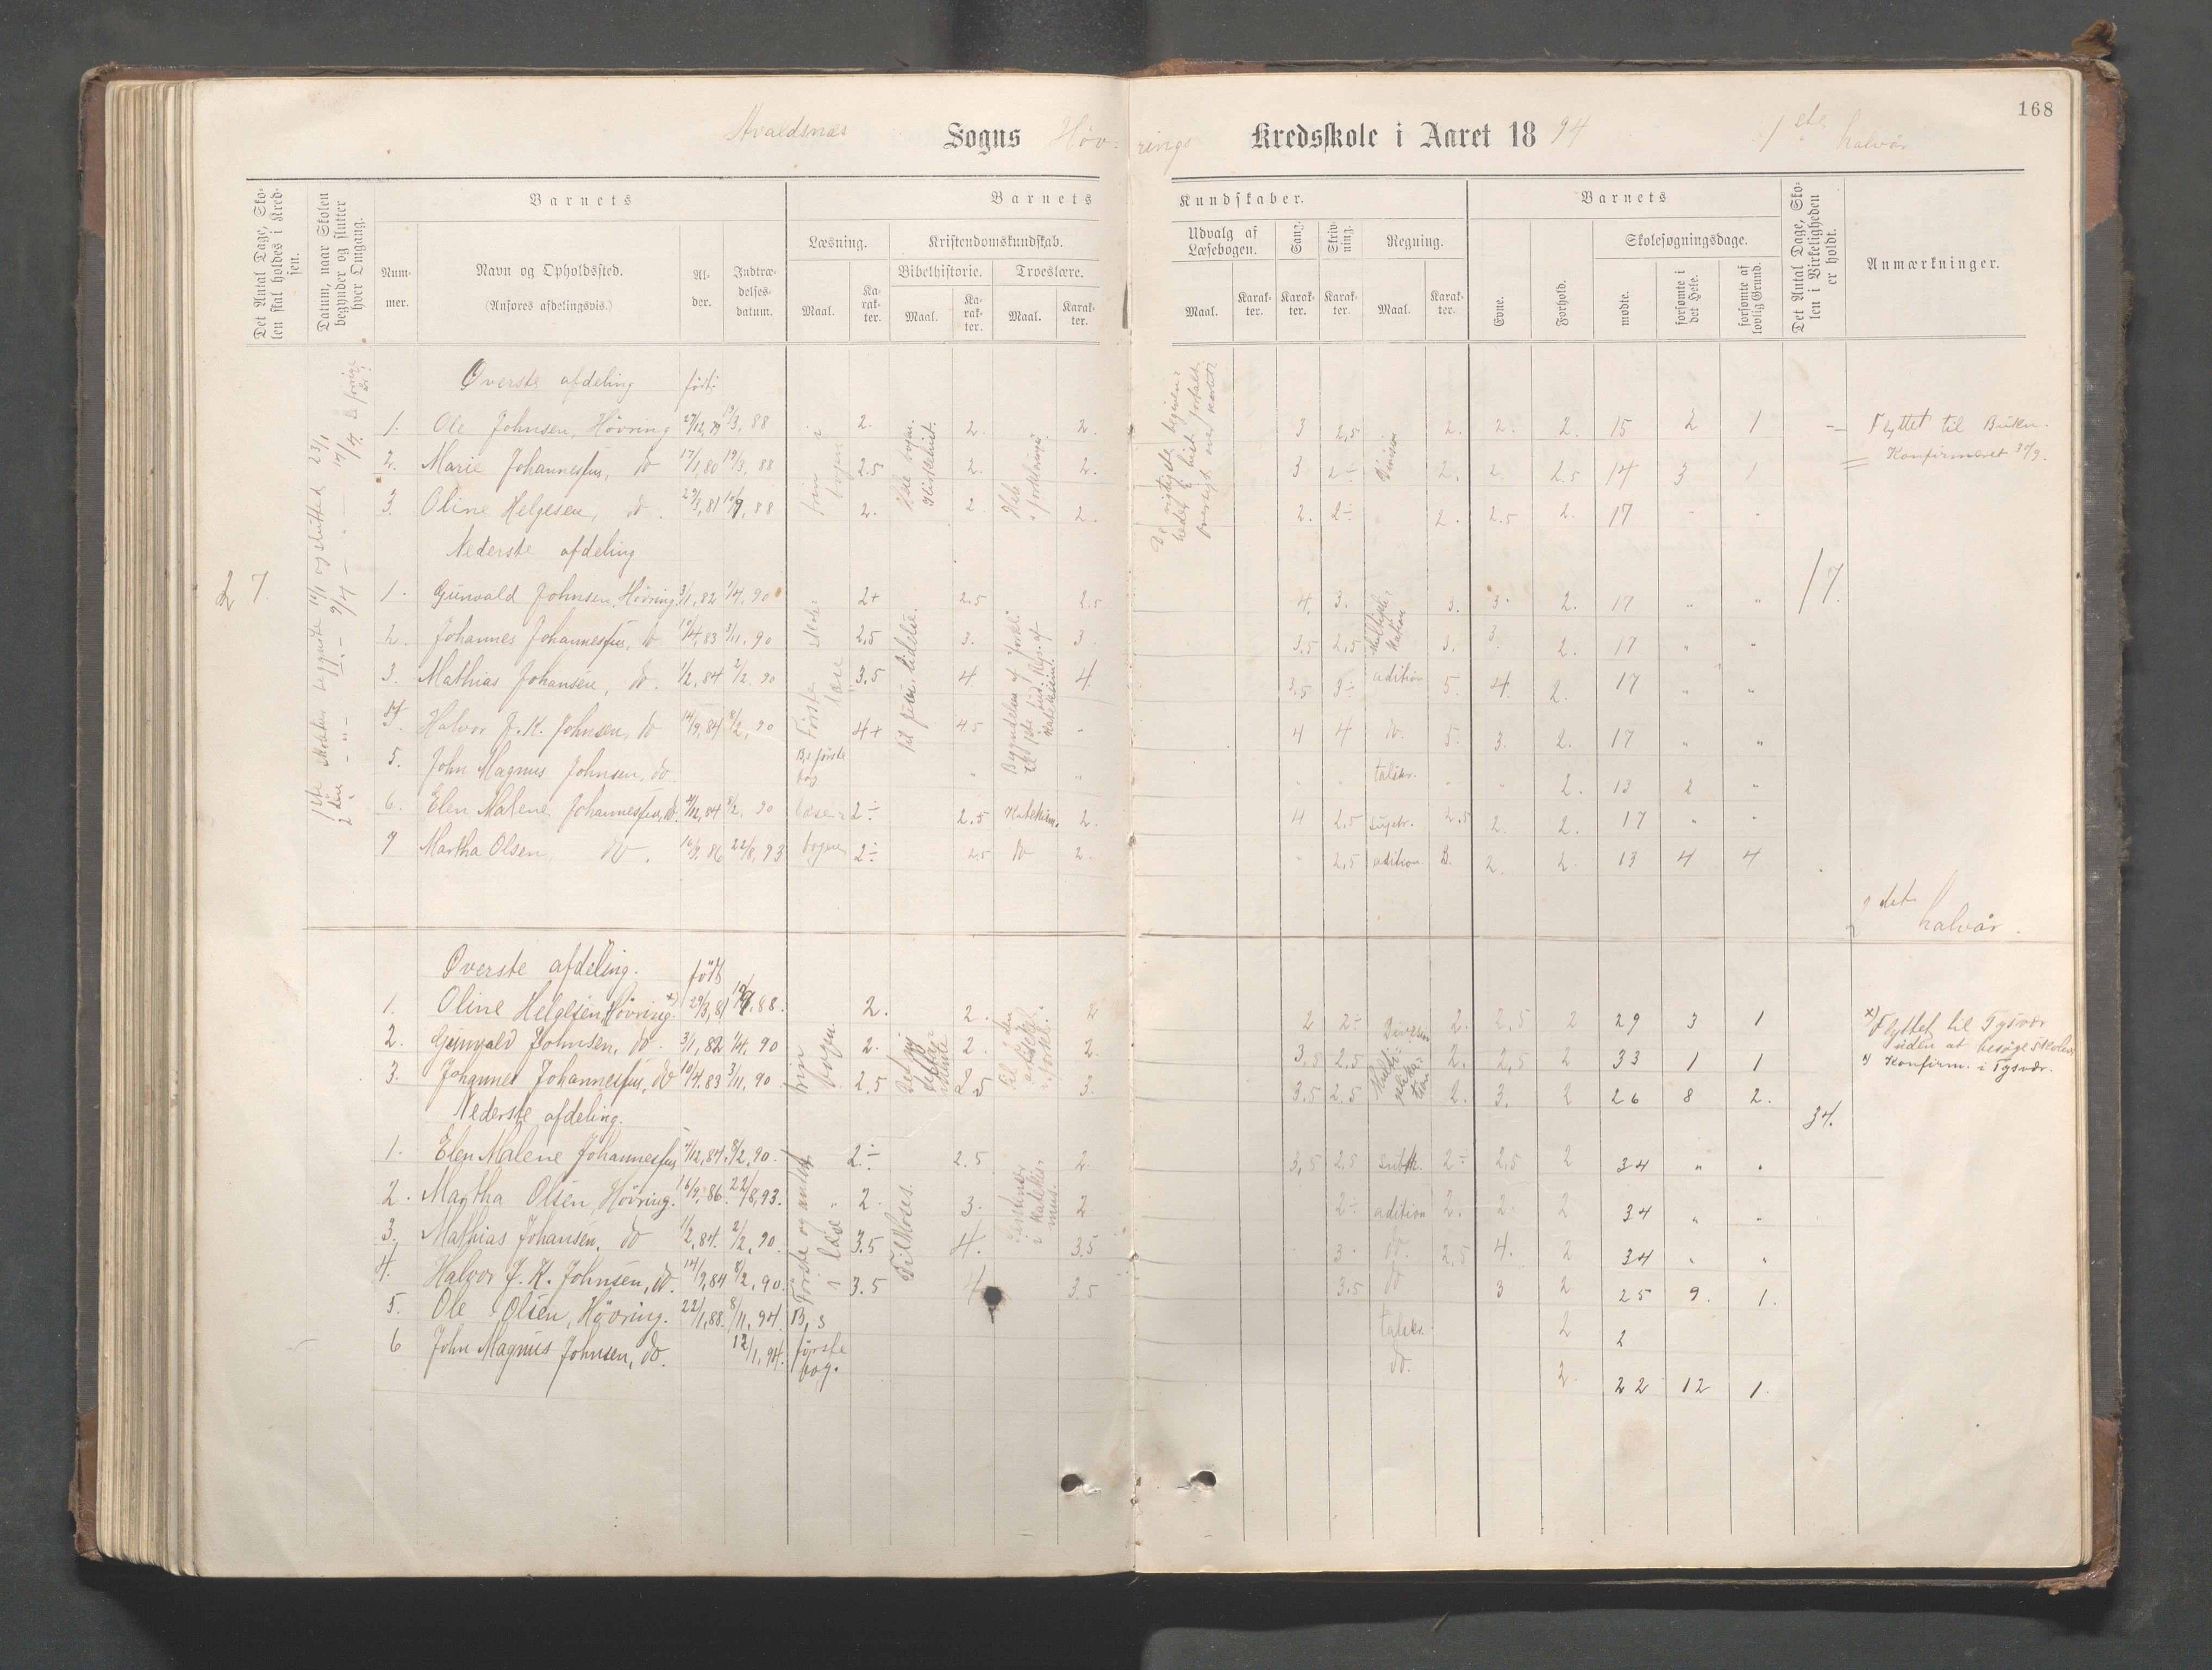 168
Avaldsnes Sogns Høv- rings Kredsskole i Aaret 18 94 1ste halvår
Det Antal Dage, Sko-
len skal holdes i Kred-
sen.
Datum, naar Skolen
begynder og slutter
hver Omgang.
Barnets
Num-
mer.
Navn og Opholdssted.
(Anføres afdelingsvis.)
Al-
der.
Indtræ-
delses-
datum.
Barnets Kundskaber.
Læsning.
Maal.
Ka-
rak-
ter.
Kristendomskundskab.
Bibelhistorie.
Maal.
Ka-
rak-
ter.
Troeslære.
Maal.
Karak-
ter.
Udvalg af
Læsebogen.
Maal.
Karak-
ter.
Sang.
Karak-
ter.
Skriv-
ning.
Karak-
ter.
Regning.
Maal.
Karak-
ter.
Barnets
Evne.
Forhold.
Skolesøgningsdage.
mødte.
forsømte i
det Hele.
forsømte af
lovlig Grund.
Det Antal Dage, Sko-
len i Virkeligheden
er holdt.
Anmærkninger.
Øverste afdeling født
1. Ole Johnsen, Hövring 27/12,79 19/3,88 2. 2. 2. 3 2,5 2. 2. 2. 15 2 1 Flyttet til Buken.
2. Marie Johannessen, do 17/1,80 19/3,88 2.5 2. 2. 3 2÷ Division 2. 2. 2.5 14 3 1 Konfirmeret
3. Oline Helgesen, do. 29/3,81 88 2. 2. 2. 2. 2÷ 2. 2.5 2. 17 " "
Nederste afdeling
27. 17.
1. Gunvald Johnsen, Hövring 3/1,82 1/4,90 2+ 2.5 2.5 4. 3. 3. 3. 2. 17 " "
2. Johannes Johannessen, do 10/4,83 3/11,90 2,5 3. 3 3.5 2,5 3. 3. 2. 17 " "
3. Mathias Johansen, do. 1/2,84 2/2,90 3.5 4 4 3.5 3÷ adition 5. 4. 2. 17 " "
4. Halvor J. K. Johnsen, do 14/9,84 8/2,90 4+ 4.5 " 4 4 do. 5. 3. 2. 17 " "
5. John Magnus Johnsen, do. B,s første
bog " " " " talskr. " " 2. 13 2 "
6. Elen Malene Johannessen, do. 4/12,84 8/2,90 læse- 2÷ 2.5 Katekism. 2. 4 2.5 supstr. 2.5 2. 2. 17 " "
7 Martha Olsen, do. 16/9,86 22/8,93 bogen 2÷ 2.5 do 2. " 2.5 adition 3. 2. 2. 13 4 4
2det halvår.
Øverste afdeling. født
1. Oline Helgesen, Hövring. x) 29/3,81 88. 2. 2. 2 2 2÷ Division 2. 2,5 2 29 3 1 x) Flyttet til Tysvær
uden at besøge skolen
2. Gunvald Johnsen, do. 3/1,82 1/4,90 2. 2. 2. 3,5 2.5 2. 2,5 2 33 1 1 Konfirm. i Tysvær.
3. Johannes Johannessen, do 10/4,83 3/11,90 2.5 2.5 3. 3.5 2.5 2. 3. 2 26 8 2.
Nederste afdeling. 34.
1. Elen Malene Johannessen 4/12,84. 8/2,90. 2÷ 2.5 2. 3,5 2.5 subtr. 2÷ 2,5 2 34 " "
2. Martha Olsen, Hövring. 16/9,86. 22/8,93. 2. 3. 2 2÷ adition 2. 2. 2 34 " "
3. Mathias Johansen, do 1/2,84. 2/2,90. 3.5 4. 3.5 3. do. 2,5 4. 2 34 " "
4. Halvor J. K. Johnsen, do. 14/9,84 8/2,90. 3.5 4 3.5 3.5 do 3 2 25 9. 1.
5. Ole Olsen, Hövring. 22/1,88. 8/11,94. B,s talskr. 2 2
6 John Magnus Johnsen, do. 12/1,94. første
bog. do. 2. 22 12 1.